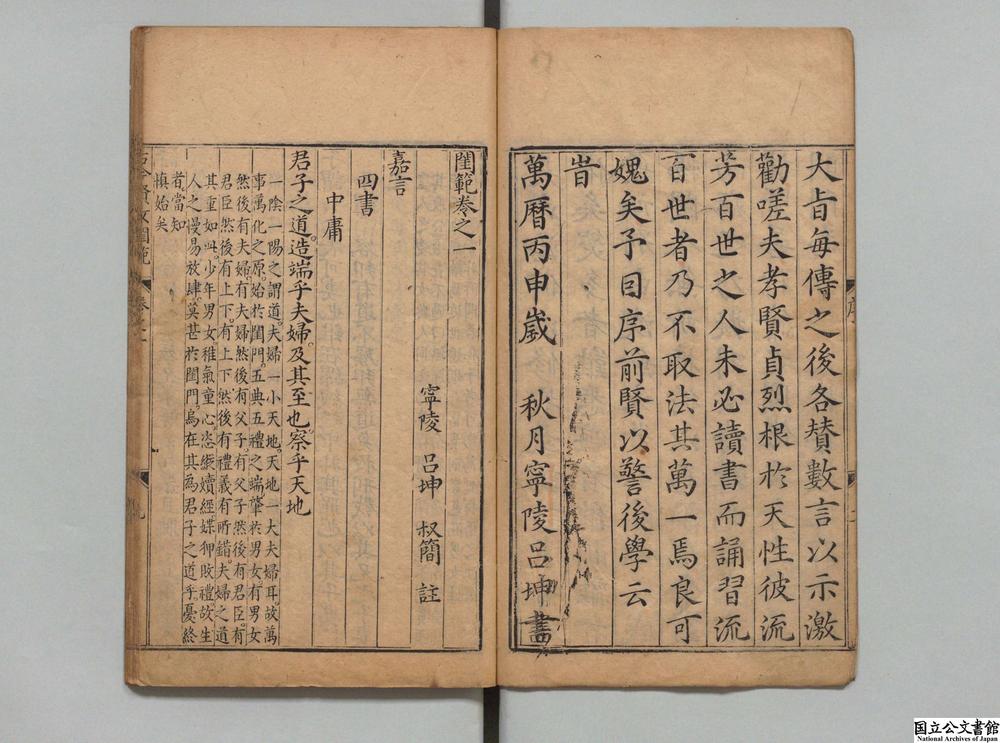 大旨每傳之後各贊數言以示激
勸嗟夫孝賢貞烈根於天性彼流
芳百世之人未必讀書而誦習流
百世者乃不取法其萬一焉良可
媿矣予曰序前賢以警後學云
旹
萬曆丙申歲 秋月寧陵呂坤書
閨範卷之一
寧陵 呂坤 叔簡 註
嘉言
四書
中庸
君子之道。造端乎夫婦。及其至也。察乎天地
一陰一陽之謂道。夫婦一小天地。天地一大夫婦耳。故萬
事萬化之原。始於閨門。五典五禮之端。肇於男女。有男女
然後有夫婦。有夫婦然後有父子。有父子然後有君臣。有
君臣然後有上下。有上下然後有禮義有所錯。夫婦之道
其重如此。少年男女稚氣童心恣縱瀆經媟狎敗禮。故生
人之漫易放肆。莫甚於閨門。烏在其為君子之道乎。憂終
者。當知
慎始矣
古今賢女閨範 卷之一
序
国立公文書館
National Archives of Japan